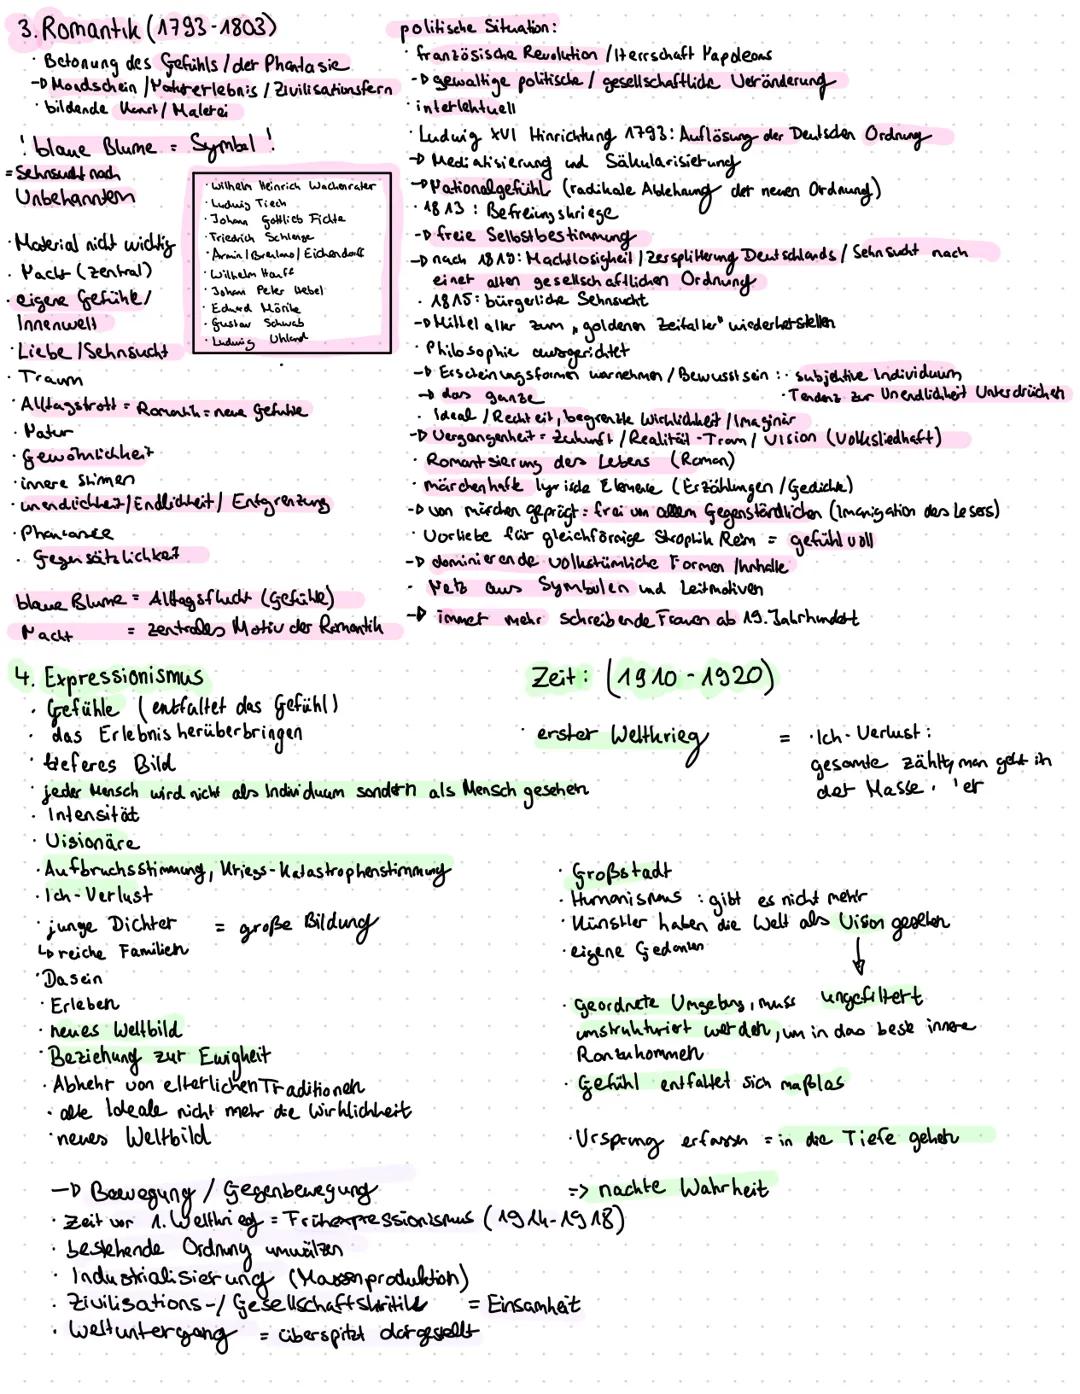 3. Romantik (1793-1803)
· Betonung des Gefühls / der Phantasie
→ Mondschein / Naturerlebnis / Zivilisationsfern
· bildende Kunst / Malerei
! blaue Blume = Symbol !
= Sehnsucht nach
Unbekanntem
· Material nicht wichtig
· Nacht (zentral)
· eigene Gefühle /
Innenwelt
· Liebe / Sehnsucht
· Traum
· Alltagstrott = Romantik = neue Gefühle
· Natur
· Gewöhnlichkeit
· innere Stimmen
· unendlichkeit / Endlichkeit / Entgrenzung
· Gegensätzlichkeit
blaue Blume = Alltagsflucht (Gefühle)
Nacht = zentrales Motiv der Romantik
· Wilhelm Heinrich Wackenroder
· Ludwig Tieck
· Johann Gottlieb Fichte
· Friedrich Schlegel
· Arnim / Brentano / Eichendorff
· Wilhelm Hauff
· Johann Peter Hebel
· Eduard Mörike
· Gustav Schwab
· Ludwig Uhland
politische Situation:
· französische Revolution / Herrschaft Napoleons
→ gewaltige politische / gesellschaftliche Veränderung
· intellektuell
· Ludwig XVI Hinrichtung 1793: Auflösung der Deutschen Ordnung
→ Mediatisierung und Säkularisierung
→ Nationalgefühl (radikale Ablehnung der neuen Ordnung)
· 1813: Befreiungskriege
→ freie Selbstbestimmung
→ nach 1815: Machtlosigkeit / Zersplitterung Deutschlands / Sehnsucht nach
einer alten gesellschaftlichen Ordnung
· 1815: bürgerliche Sehnsucht
→ Mittelalter zum "goldenen Zeitalter" wiederherstellen
· Philosophie ausgerichtet
→ Erscheinungsformen warnehmen / Bewusstsein: · subjektive Individuum
→ das ganze · Tendenz zur Unendlichkeit Unterdrücken
· Ideal / begrenzte Wirklichkeit / Imaginär
→ Vergangenheit = Zukunft / Realität - Traum / Vision (Volksliedhaft)
· Romantisierung des Lebens (Roman)
· märchenhafte lyrische Elemente (Erzählungen / Gedichte)
→ von märchen geprägt: frei von allem Gegenständlichen (Imanigation des Lesers)
· Vorliebe für gleichförmige Strophik Reim = gefühlvoll
→ dominierende volkstümliche Formen / Inhalte
· Netz aus Symbolen und Leitmotiven
→ immer mehr schreibende Frauen ab 19. Jahrhundert
4. Expressionismus
Zeit: (1910-1920)
· Gefühle (entfaltet das Gefühl)
· das Erlebnis herüberbringen
· tieferes Bild
· jeder Mensch wird nicht als Individuum sondern als Mensch gesehen
· Intensität
· Visionäre
· Aufbruchsstimmung, Kriegs-Katastrophenstimmung
· Ich-Verlust
· junge Dichter = große Bildung
↳ reiche Familien
· Dasein
· Erleben
· neues Weltbild
· Beziehung zur Ewigheit
· Abkehr von elterlichen Traditionen
· alte Ideale nicht mehr die Wirklichkeit
· neues Weltbild
· erster Weltkrieg = · Ich-Verlust:
gesamte zählt, man geht in
der Masse
· Großstadt
· Humanismus: gibt es nicht mehr
· Künstler haben die Welt als Vision gesehen
· eigene Gedanken
↓
ungefiltert
· geordnete Umgebung, muss
umstrukturiert werden, um in das beste innere
Ranzukommen
· Gefühl entfaltet sich maßlos
· Ursprung erfassen = in die Tiefe gehen
=> nackte Wahrheit
→ Bewegung / Gegenbewegung
· Zeit vor 1. Weltkrieg = Frühexpressionismus (1914-1918)
· bestehende Ordnung umwälzen
· Industrialisierung (Massenproduktion)
· Zivilisations-/ Gesellschaftskritik = Einsamkeit
· Weltuntergang = überspitzt dargestellt